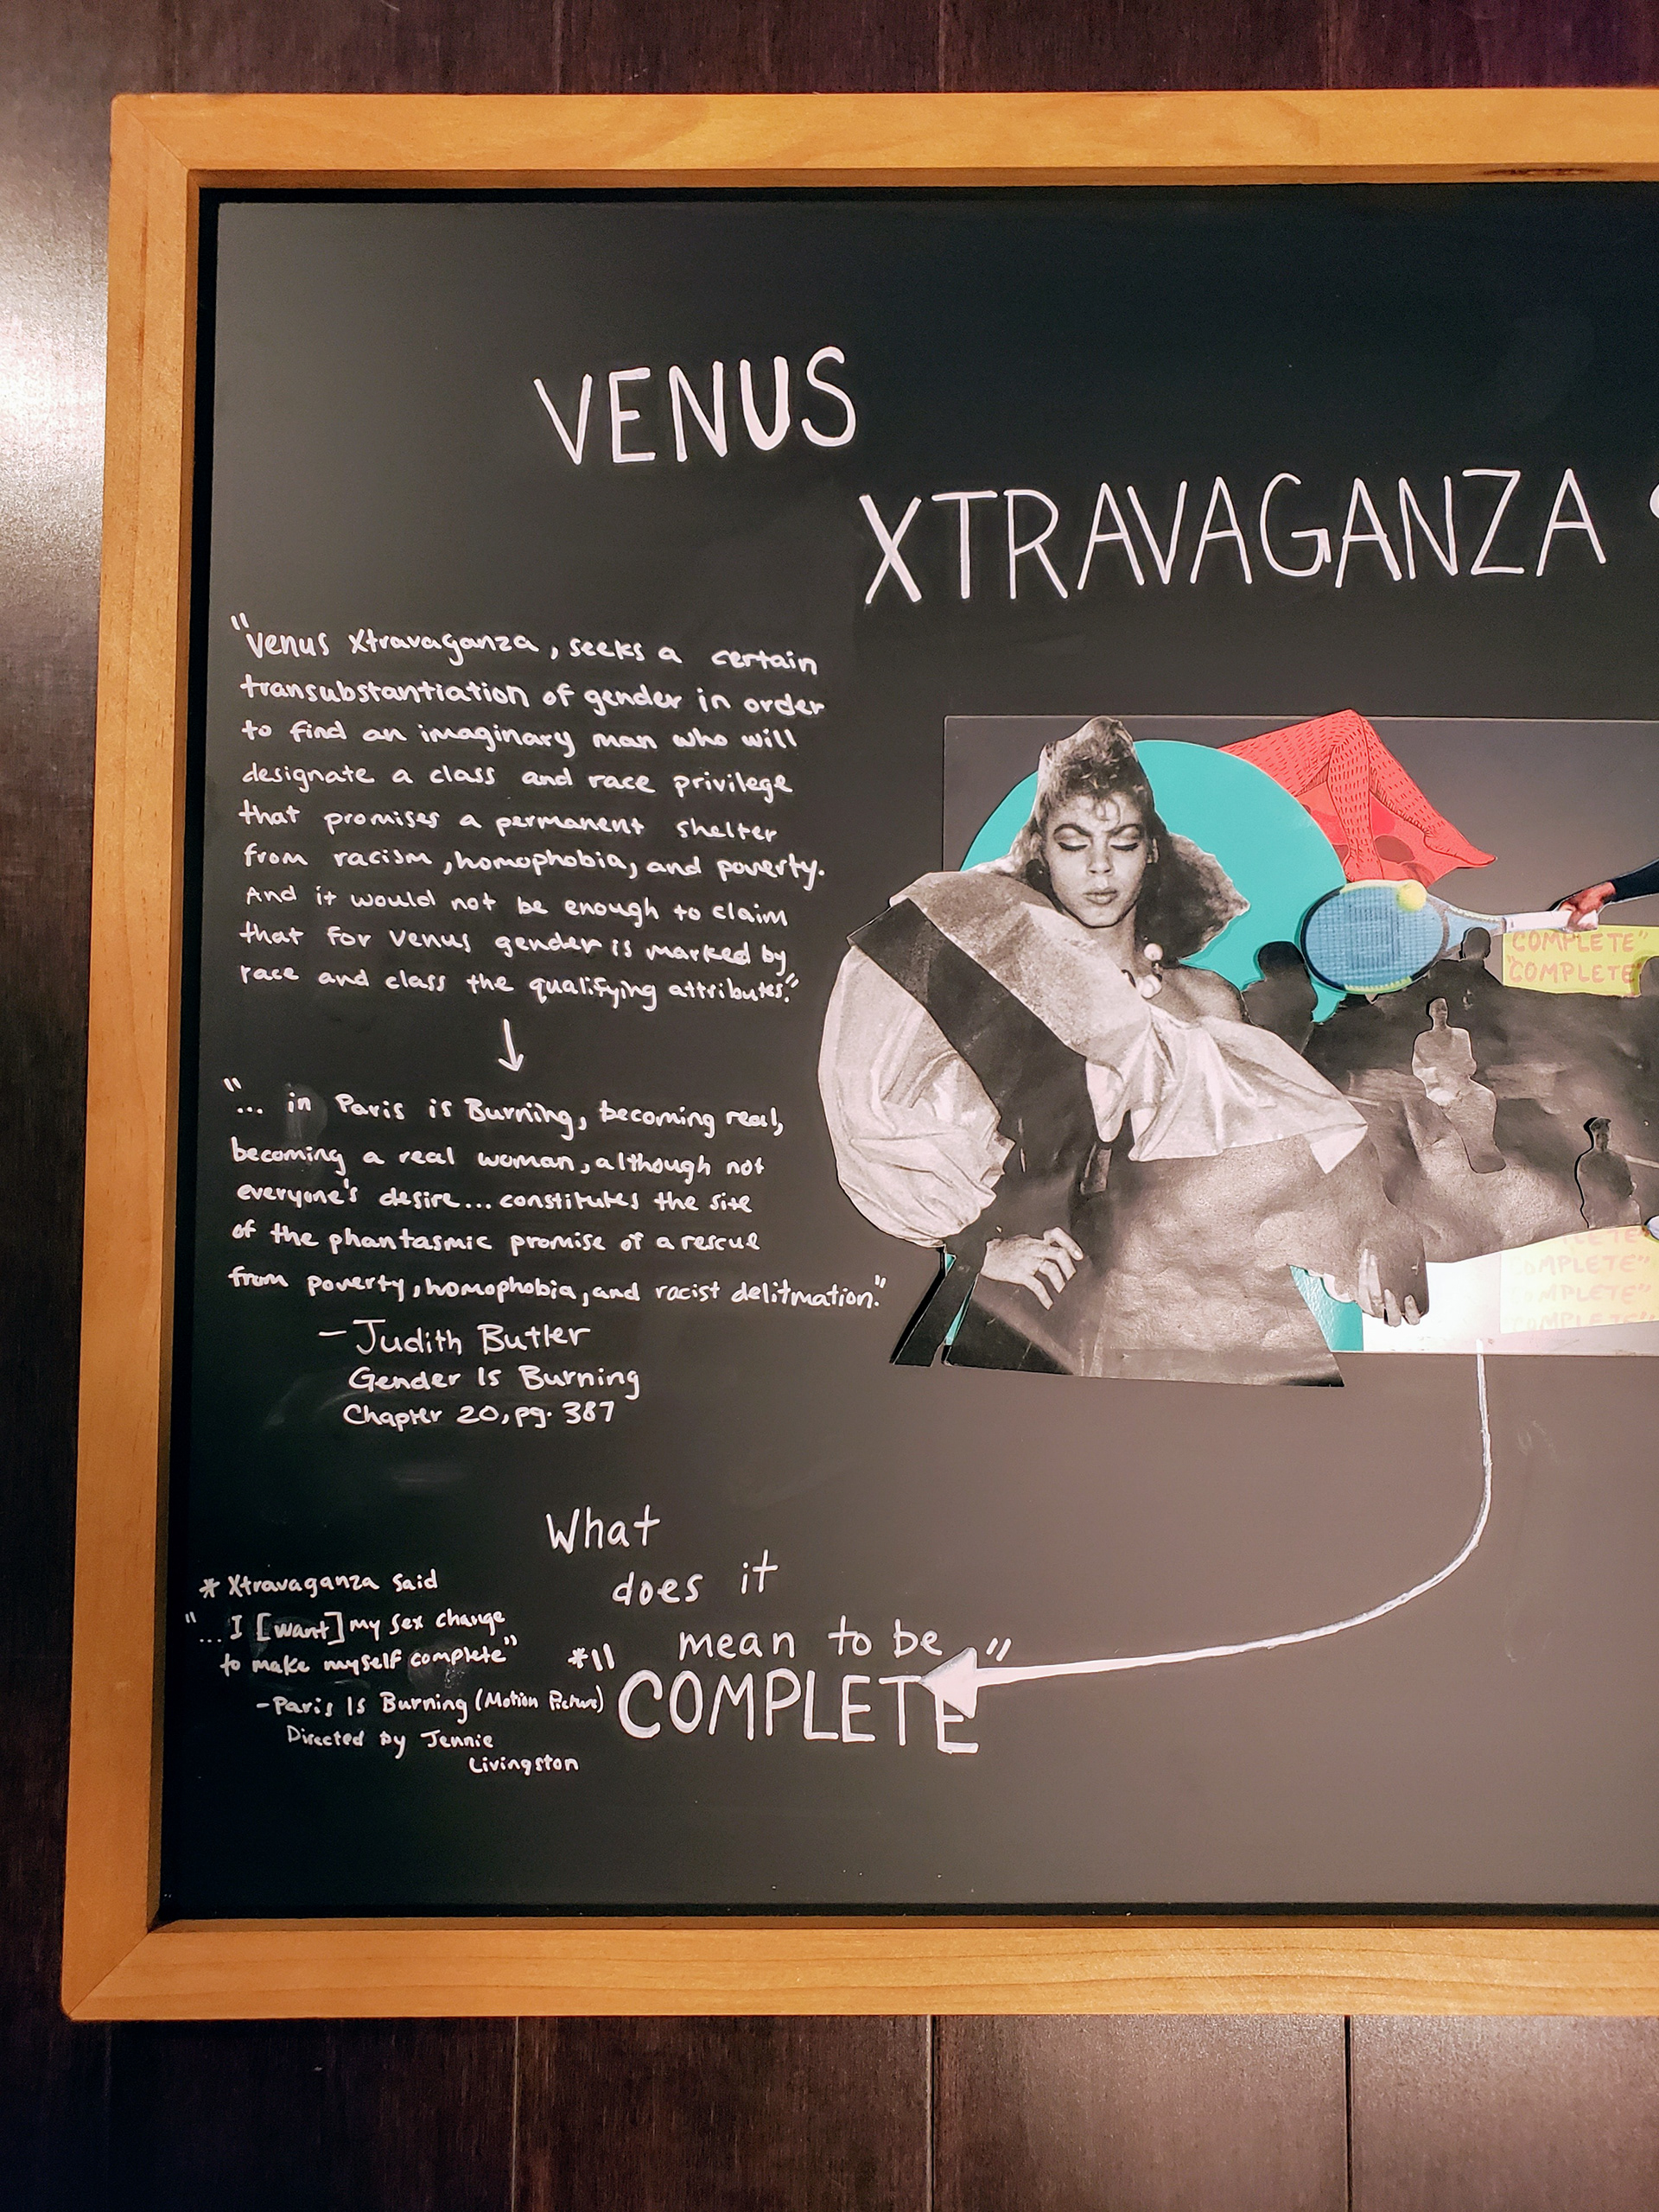 VENUS
XTRAVAGANZA
"Venus Xtravaganza, seeks a certain
transubstantiation of gender in order
to find an imaginary man who will
designate a class and race privilege
that promises a permanent shelter
from racism, homophobia, and poverty.
And it would not be enough to claim
that for Venus gender is marked by
race and class the qualifying attributes."
"... in Paris is Burning, becoming real,
becoming a real woman, although not
everyone's desire... constitutes the site
of the phantasmic promise of a rescue
from poverty, homophobia, and racist delitmation."
- Judith Butler
Gender Is Burning
Chapter 20, pg. 387
COMPLETE"
"COMPLETE"
OMPLETE"
OMPLETE"
What
does it
mean to be
*"COMPLETE"
* Xtravaganza said
"...I [want] my sex change
to make myself complete"
- Paris Is Burning (Motion Picture)
Directed by Jennie
Livingston